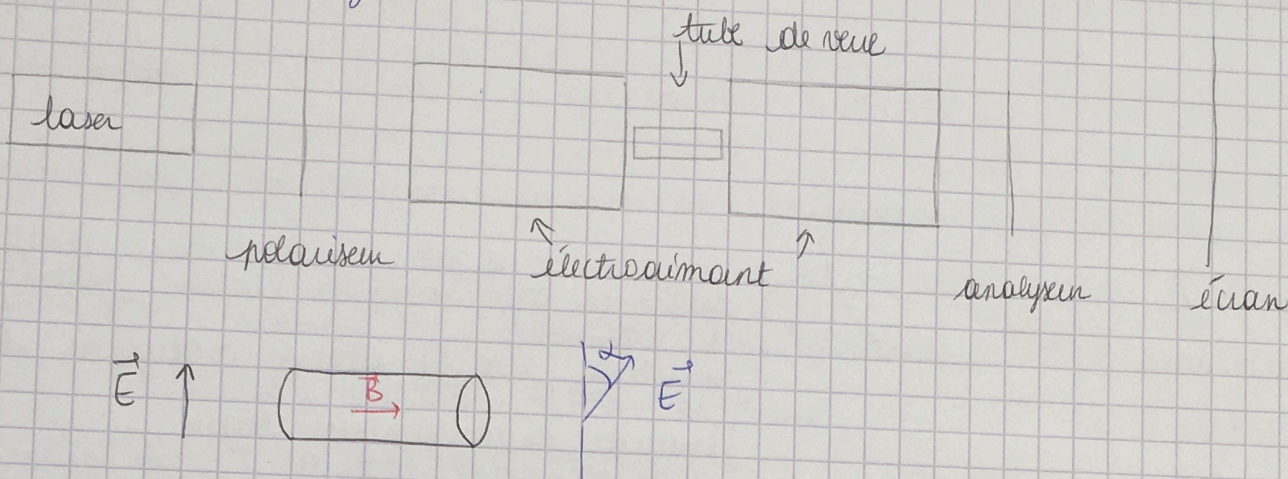 tube de verre
laser
polariseur
électroaimant
analyseur
écran
E
B
α
E